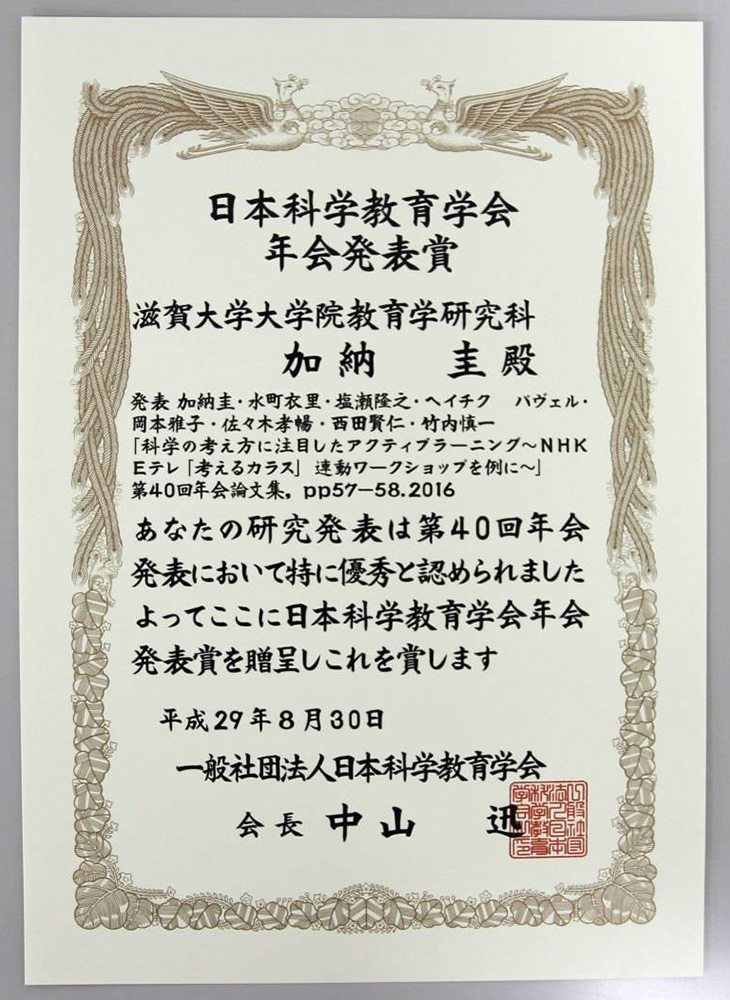 日本科学教育学会
年会発表賞
滋賀大学大学院教育学研究科
加納　圭殿
発表 加納圭・水町衣里・塩瀬隆之・ヘイチク　パヴェル・
岡本雅子・佐々木孝暢・西田賢仁・竹内慎一
「科学の考え方に注目したアクティブラーニング～NHK
Eテレ「考えるカラス」連動ワークショップを例に～」
第40回年会論文集，pp57－58.2016
あなたの研究発表は第40回年会
発表において特に優秀と認められました
よってここに日本科学教育学会年会
発表賞を贈呈しこれを賞します
平成29年8月30日
一般社団法人日本科学教育学会
会長 中山　迅